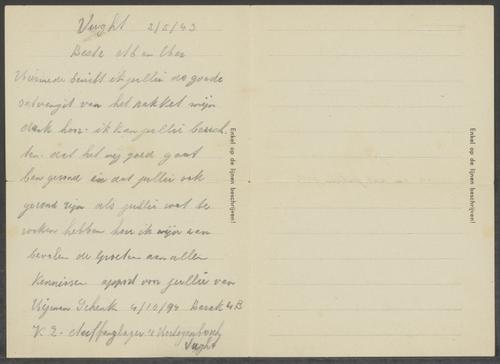 Vught 2/5/43
Beste Ab en Cher
Hiermede bericht ik jullie de goede
ontvangst van het pakket mijn
dank hoor. ik kan jullie berich
ten. dat het mij goed gaat
ben gezond en dat jullie ook
gezond zijn als jullie wat te
rooken hebben hou ik mijn aan
bevolen de Groeten aan allen
Kennissen apport voor jullie van
Schenk 4/10/94 Barak 4B
K.L. Auffanglager 's Hertogenbosch
Vught
Enkel op de lijnen beschrijven!
Enkel op de lijnen beschrijven!